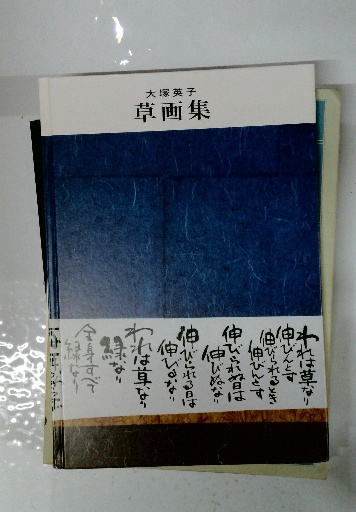 大塚英子
草画集
われは草なり
伸びんとす
伸びられるとき
伸びんとす
伸びられぬ日は
伸びぬなり
伸びられる日は
伸びるなり
われは草なり
緑なり
全身すべて
緑なり